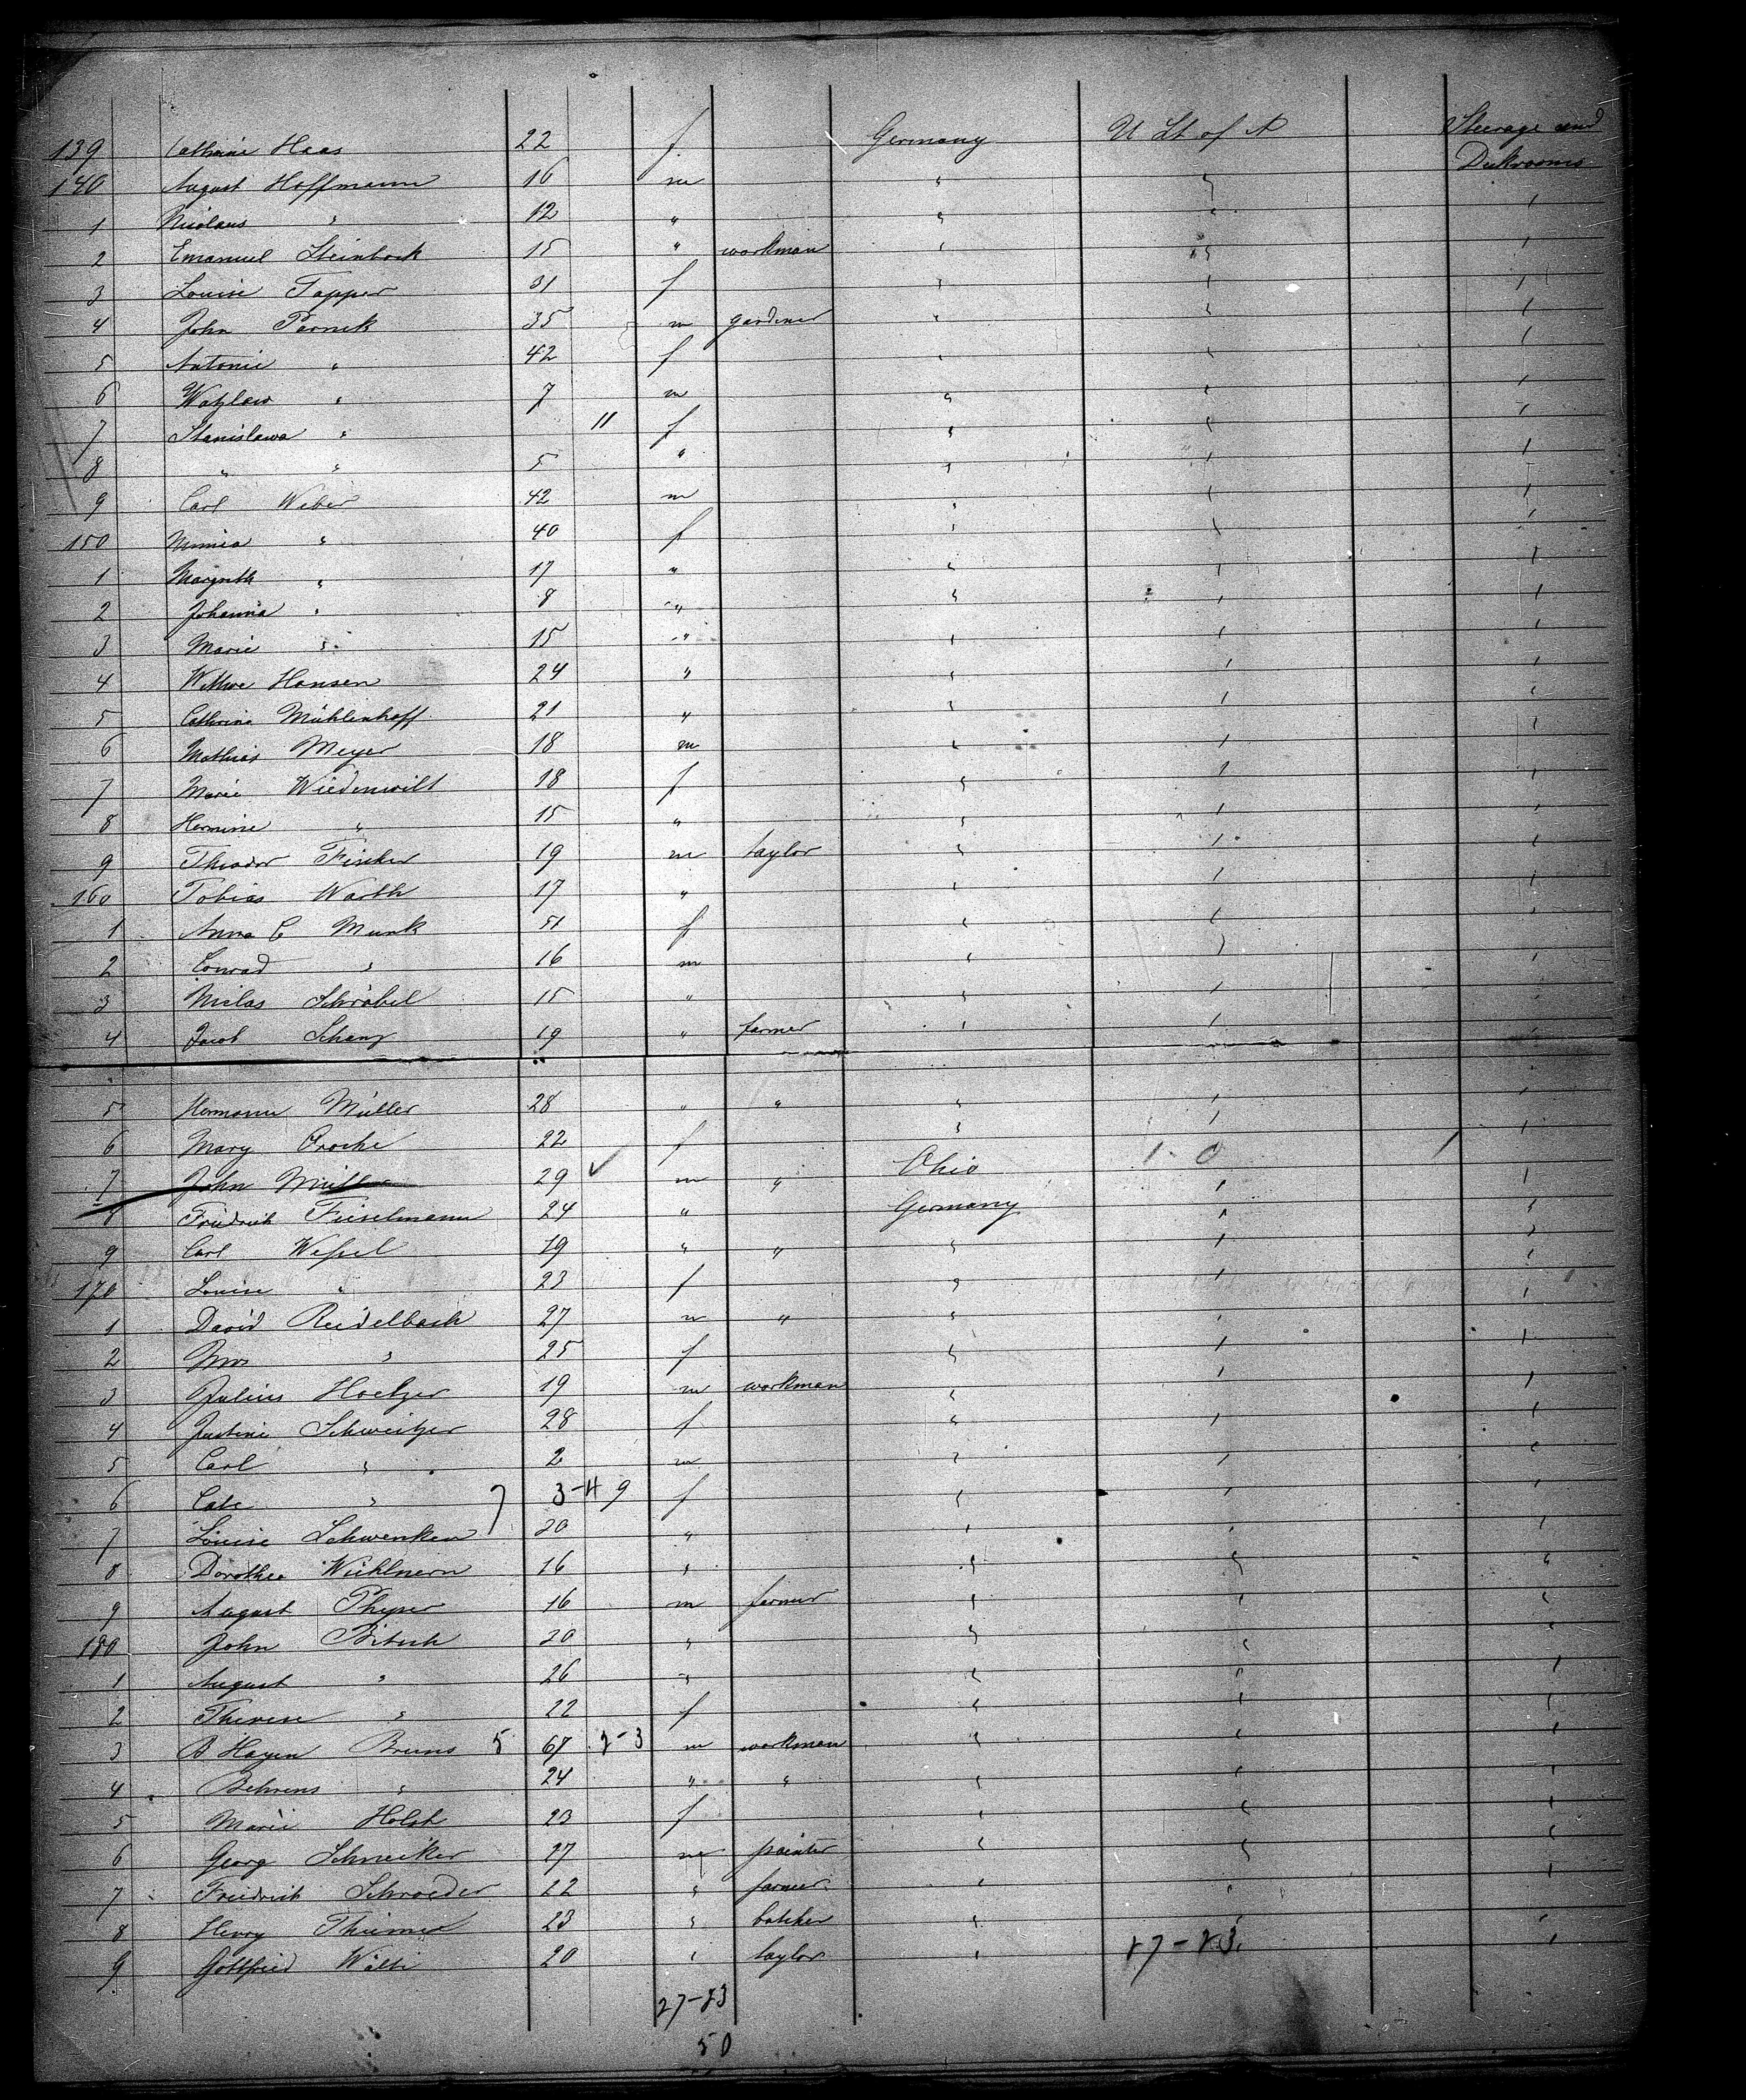 139 Cathrine Haas 22 f. Germany U St of A Steerage and
140 August Hoffmann 16 m " " Deckrooms
1 Nicolaus " 12 " " " "
2 Emanuel Steinbock 15 " workman " " "
3 Louise Tapper 31 f " " "
4 John Pernek 35 m gardener " " "
5 Antonie " 42 f " " "
6 Watzlaw " 7 m " " "
7 Stanislawa " 11 f " " "
8 " " 5 " " " "
9 Carl Weber 42 m " " "
150 " 40 f " " "
1 Margreth " 17 " " " "
2 Johanna " 8 " " " "
3 Marie " 15 " " " "
4 Wittwe Hansen 24 " " " "
5 Cathrine Mühlenhoff 21 " " " "
6 Mathias Meyer 18 m " " "
7 Marie Wiedenwilt 18 f " " "
8 Hermine " 15 " " " "
9 Theodor Fischer 19 m taylor " " "
160 Tobias Warth 17 " " " "
1 Anna C Munk 51 f " " "
2 Conrad " 16 m " " "
3 Niclas Schräbel 15 " " " "
4 Jacob Schanz 19 " farmer " " "
5 Hermann Müller 28 " " " " "
6 Mary 22 f " " "
7 John Miller 29 ✓ m " Ohio " "
8 Friedrich Fieselmann 24 " Germany " "
9 Carl Weßel 19 " " " " "
170 Louise " 23 f " " "
1 David Reidelbach 27 m " " " "
2 Mrs " 25 f " " "
3 Julius Hoelzer 19 m workman " " "
4 Justine Schweitzer 28 f " " "
5 Carl " 2 m " " "
6 Cate " 7 3-11 9 f " " "
7 Louise Schwenken 20 " " " "
8 Dorothee 16 " " " "
9 August 16 m farmer " " "
180 John Bitsch 20 " " " "
1 August " 26 " " " "
2 Therese " 22 f " " "
3 B Hayen Bruns 5 67 2-3 m workman " " "
4 Behrens " 24 " " " " "
5 Marie Holst 23 f " " "
6 Georg Schneiker 27 m painter " " "
7 Friedrich Schroeder 22 " farmer " " "
8 Henry Thiemer 23 " " " "
9 Gottfried Wälti 20 " taylor " 27-23 "
27-23
50